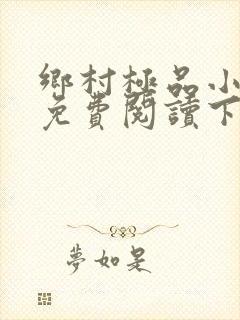 鄉村極品小
免費閱讀下
夢如是